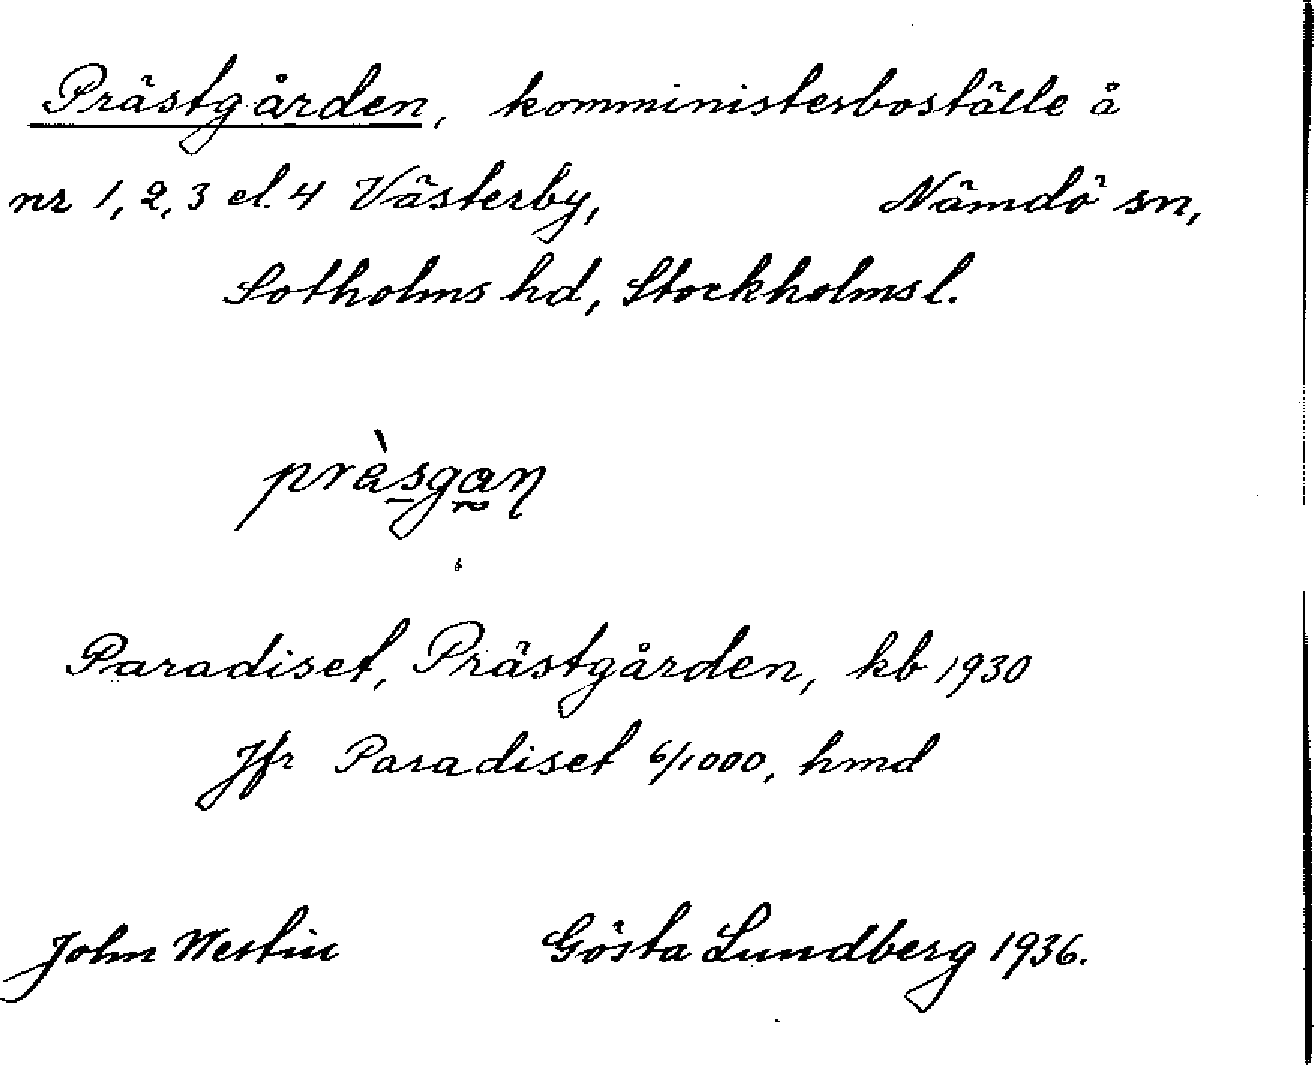 Prästgården, komministerboställe å
nr 1, 2, 3 el. 4 Västerby, Nämdö sn,
Sotholms hd, Stockholms l.
pràsgaη
Paradiset, Prästgården, kb 1930
Jfr Paradiset 6/1000, hmd
John Westin Gösta Lundberg 1936.